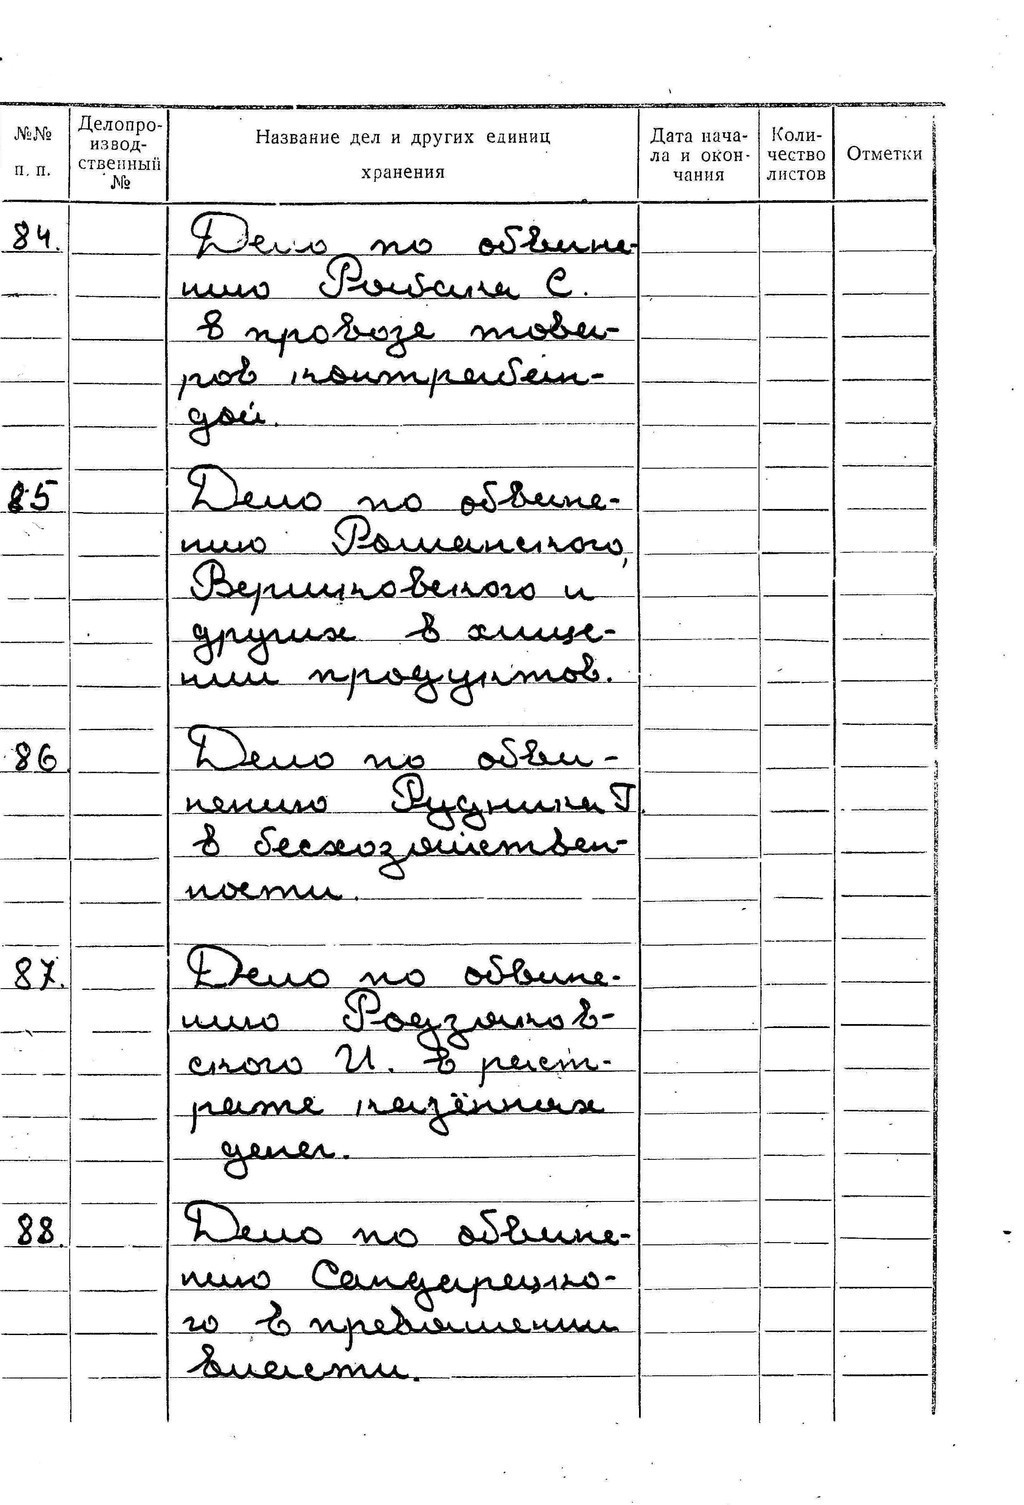 №№ п. п.
Делопро-
извод-
ственный
№
Название дел и других единиц
хранения
Дата нача-
ла и окон-
чания
Коли-
чество
листов
Отметки
84. Дело по обвине-
нию С.
в провозе това-
ров контрабан-
дой.
85 Дело по обвине-
нию Романского,
Вершковского и
других в хище-
нии продуктов.
86 Дело по обви-
нению Рудника Г.
в бесхозяйствен-
ности.
87. Дело по обвине-
нию Родзянков-
ского И. в раст-
рате казённых
денег.
88. Дело по обвине-
нию Сандарецко-
го в превышении
власти.